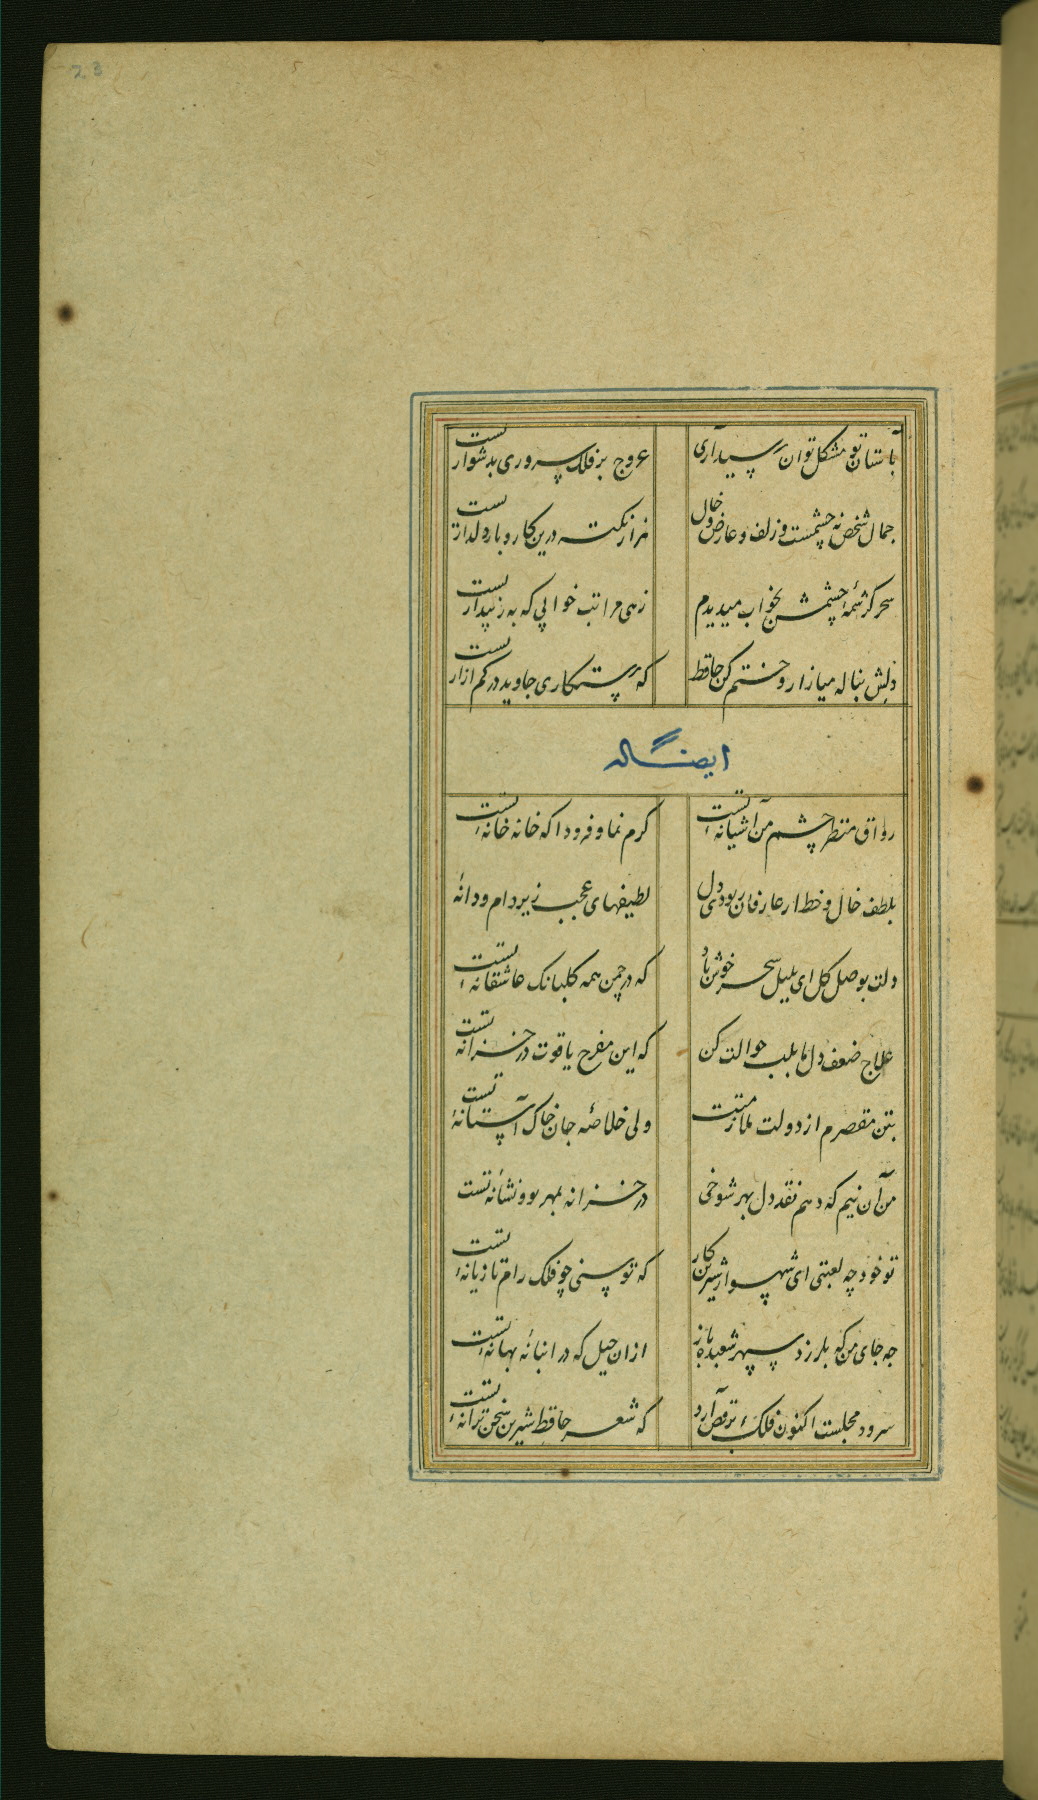 23
بآستان تو مشکل توان رسید آری
عروج بر فلک سروری بدشواریست
جمال شخص نه چشمست و زلف و عارض و خال
هزار نکته درین کار و بار دلداریست
سحر کرشمهٔ چشمش بخواب میدیدم
زهی مراتب خوابی که به ز بیداریست
دلش بناله میازار و ختم کن حافظ
که رستکاری جاوید در کم ازاریست
ایضا له
رواق منظر چشم من آشیانهٔ تست
کرم نما و فرود ا که خانه خانهٔ تست
بلطف خال و خط از عارفان ربودی دل
لطیفهای عجب زیر دام و دانهٔ
دلت بوصل کل ای بلبل سحر خوش باد
که در چمن همه کلبانک عاشقانهٔ تست
علاج ضعف دل ما بلب حوالت کن
که این مفرح یاقوت در خزانهٔ تست
بتن مقصرم از دولت ملازمتت
ولی خلاصهٔ جان خاک آستانهٔ تست
من آن نیم که دهم نقد دل بهر شوخی
در خزانه بمهر تو و نشانهٔ تست
تو خود چه لعبتی ای شهسوار شیرین کار
که توسنی چو فلک رام تازیانهٔ تست
چه جای من که بلرزد سپهر شعبده باز
ازان حیل که در انبانهٔ بهانهٔ تست
سرود مجلست اکنون فلک برقص آرد
که شعر حافظ شیرین سخن ترانهٔ تست